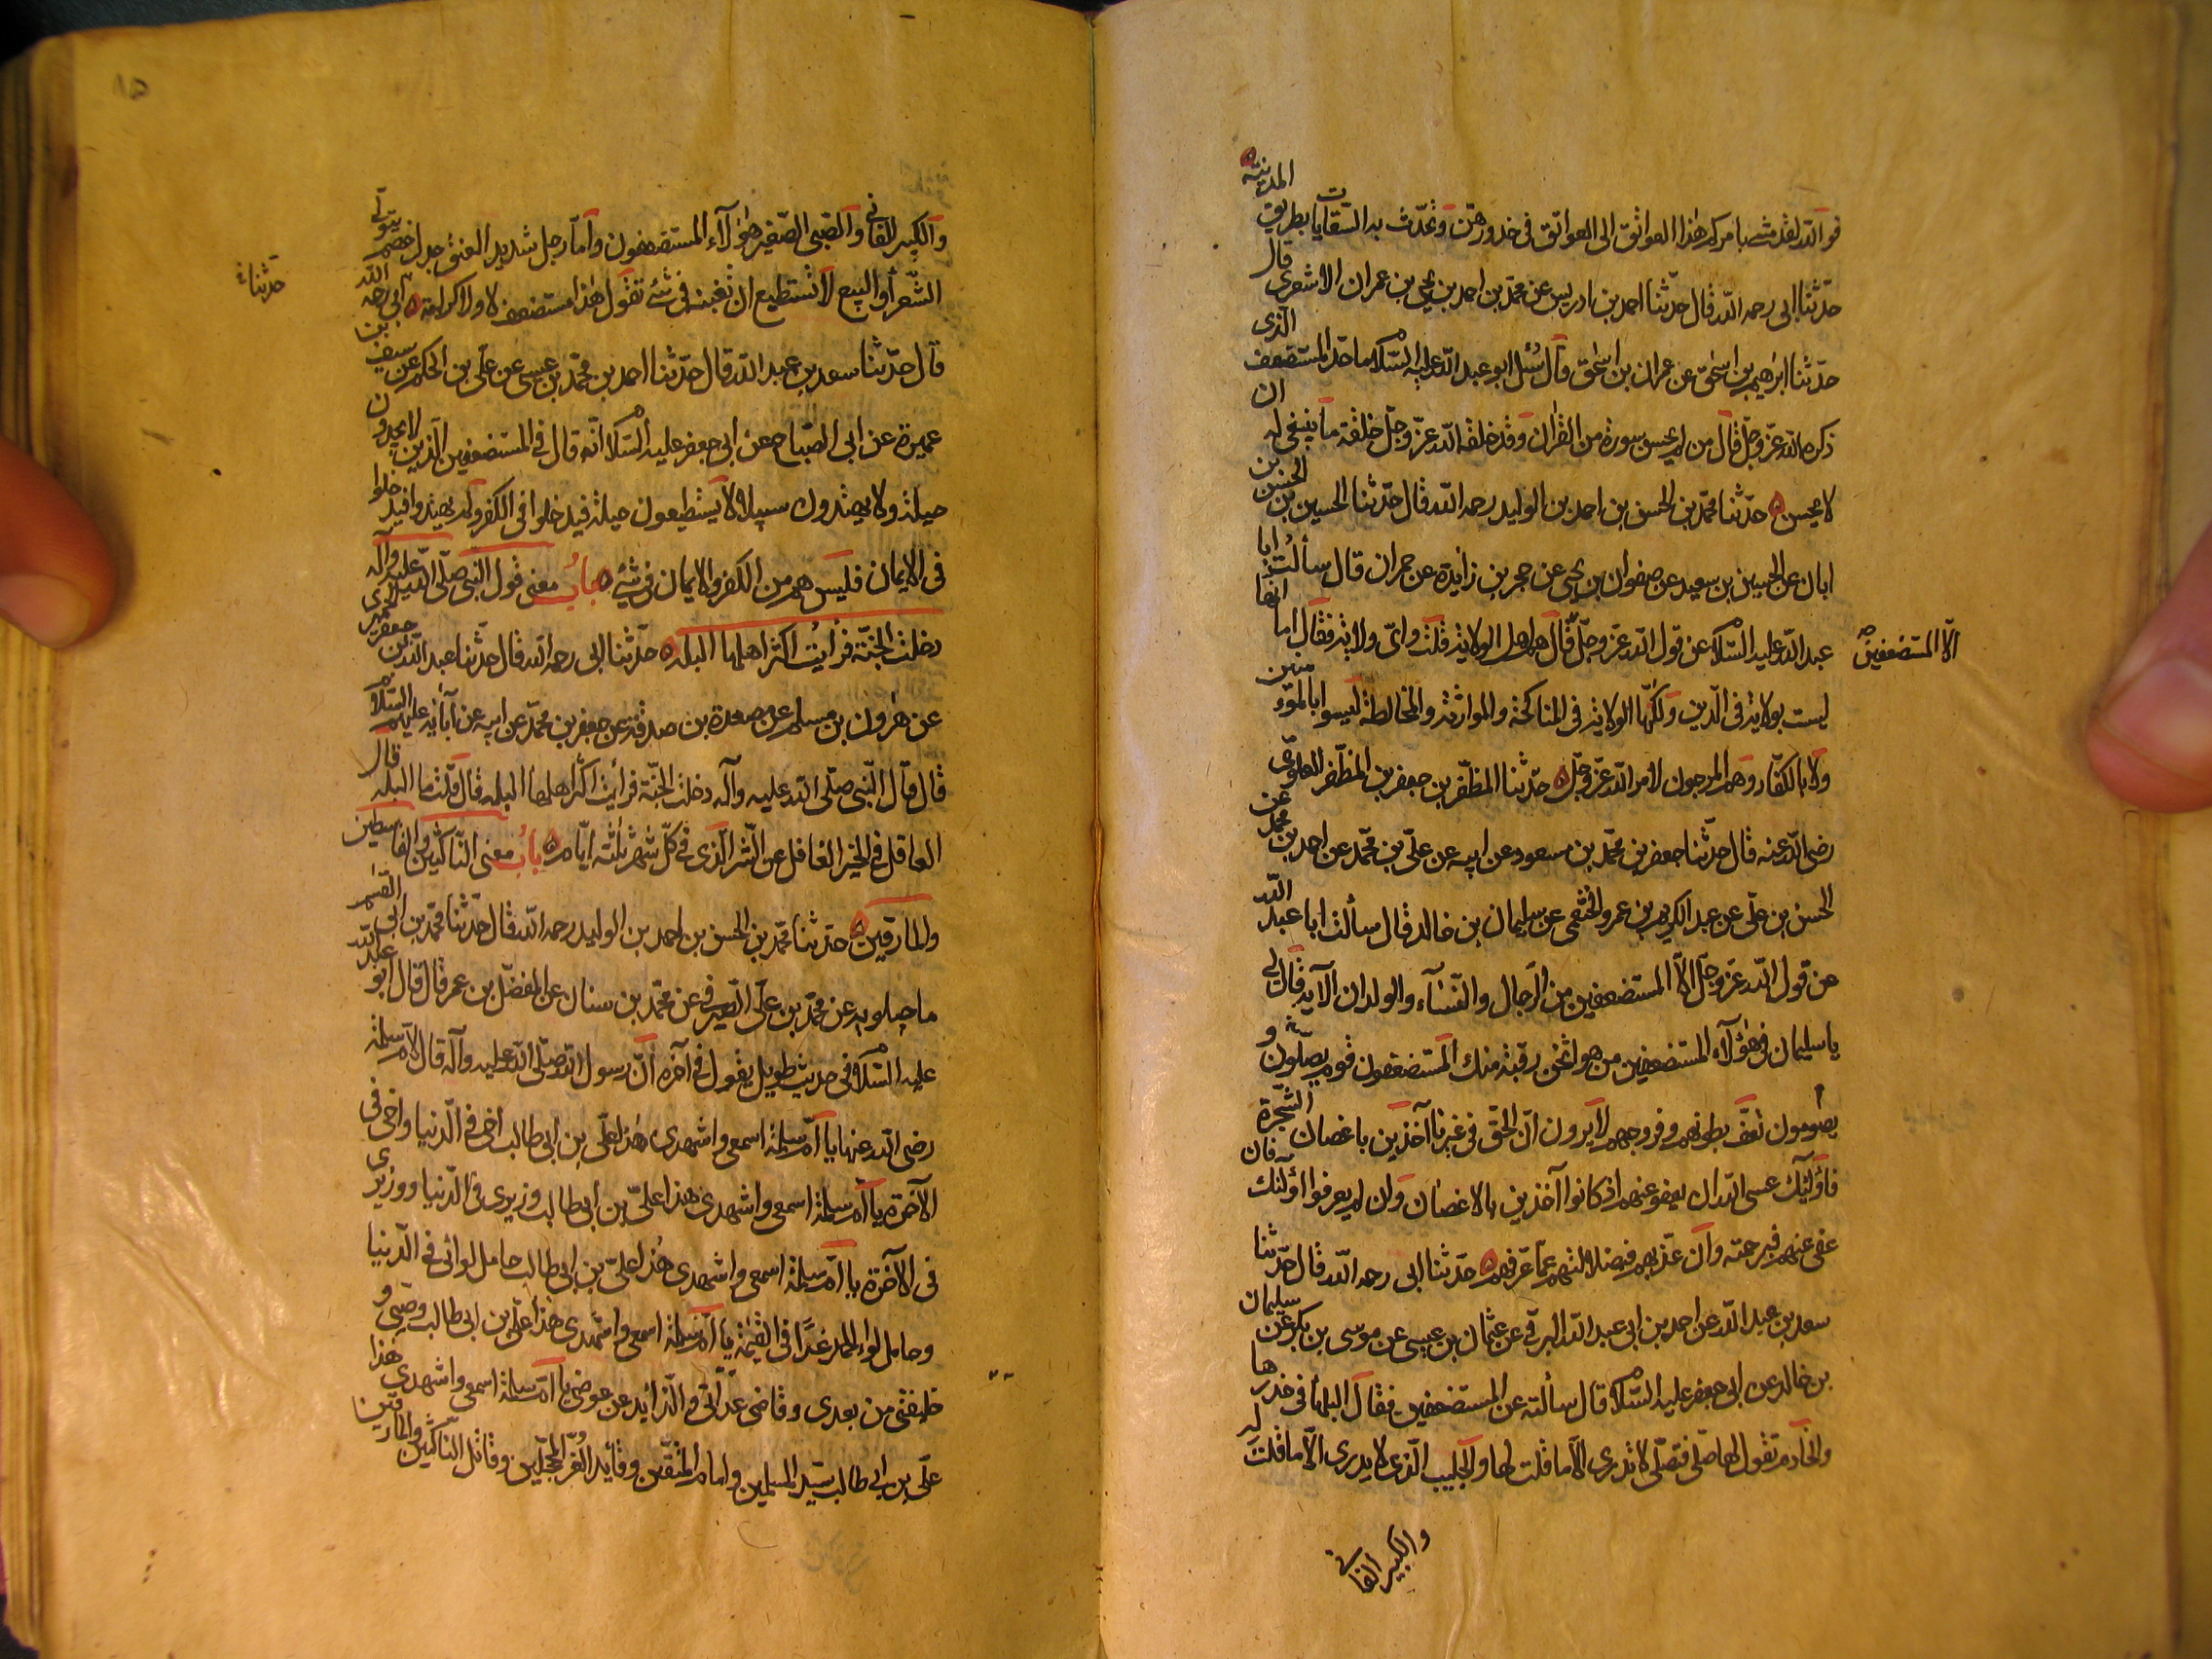 فوالله لقد مشى بامركم هذا العواتق الى العواتق فى خدورهن وتحدث به السقايات بطريق المدينة
حدثنا ابى رحمه الله قال حدثنا احمد بن ادريس عن محمد بن احمد بن يحيى بن عمران الاشعرى قال
حدثنا ابرهيم بن اسحق عن عمران بن اسحق قال سئل ابو عبد الله عليه السلام ما حد المستضعف الذى
ذكره الله عز وجل قال من لم يحسن سورة من القران وقد خلقه الله عز وجل خلقة ما ينبغى له ان
لا يحسن حدثنا محمد بن الحسن بن احمد بن الوليد رحمه الله قال حدثنا الحسين بن الحسن بن
ابان عن الحسين بن سعيد عن صفوان بن يحيى عن حجر بن زايدة عن حمران قال سألت ابا
عبد الله عليه السلام عن قول الله عز وجل قال هم اهل الولاية قلت واى ولاية فقال اما انها
الا المستضعفين صح
ليست بولاية فى الدين ولكنها الولاية فى المناكحة والموارثة والمخالطة ليسوا بالمؤمنين
ولا بالكفار وهم المرجون لامر الله عز وجل حدثنا المظفر بن جعفر بن المظفر العلوى
رضى الله عنه قال حدثنا جعفر بن محمد بن مسعود عن ابيه عن على بن محمد عن احمد بن محمد عن
الحسن بن على عن عبد الكريم بن عمرو الخثعمى عن سليمان بن خالد قال سألت ابا عبد الله
عن قول الله عز وجل الا المستضعفين من الرجال والنساء والولدان الآية قال لى
يا سليمان فى هؤلاء المستضعفين من هو اثخن رقبة منك المستضعفون قوم يصلون و
يصومون تعف بطونهم وفروجهم لا يرون ان الحق فى غيرنا آخذين باغصان الشجرة
فاولئك عسى الله ان يعفو عنهم اذ كانوا آخذين بالاغصان وان لم يعرفوا اولئك فان
عفى عنهم فبرحمته وان عذبهم فبضلالتهم عما عرفهم حدثنا ابى رحمه الله قال حدثنا
سعد بن عبد الله عن احمد بن ابى عبد الله البرقى عن عثمان بن عيسى عن موسى بن بكر عن سليمان
بن خالد عن ابى جعفر عليه السلام قال سألته عن المستضعفين فقال البلهاء فى خدرها
والخادم تقول لها صلى فتصلى لا تدرى الا ما قلت لها والجليب الذى لا يدرى الا ما قلت له
والكبير الفانى
١٥
والكبير الفانى والصبى الصغير هؤلاء المستضعفون واما رجل شديد العنق جدل خصم يتولى
الشرأ والبيع لا تستطيع ان تغبنه فى شئ تقول هذا مستضعف لا ولا كرامة ابى رحمه الله
حدثنا
قال حدثنا سعد بن عبد الله قال حدثنا احمد بن محمد بن عيسى عن على بن الحكم عن سيف بن
عميرة عن ابى الصباح عن ابى جعفر عليه السلام انه قال فى المستضعفين الذين لا يجدون
حيلة ولا يهتدون سبيلا لا يستطيعون حيلة فيدخلوا فى الكفر ولم يهتدوا فيدخلوا
فى الايمان فليس هم من الكفر والايمان فى شئ باب معنى قول النبى صلى الله عليه وآله
دخلت الجنة فرأيت اكثر اهلها البله حدثنا ابى رحمه الله قال حدثنا عبد الله بن جعفر الحميرى
عن هرون بن مسلم عن مصعدة بن صدقة عن جعفر بن محمد عن ابيه عن آبائه عليهم السلام
قال قال النبى صلى الله عليه وآله دخلت الجنة فرأيت اكثر اهلها البله قال قلت ما البله قال
العاقل فى الخير الغافل عن الشر الذى فى كل شهر ثلثة ايام باب معنى الناكثين والقاسطين
والمارقين حدثنا محمد بن الحسن بن احمد بن الوليد رحمه الله قال حدثنا محمد بن ابى القسم
ماجيلويه عن محمد بن على الصيرفى عن محمد بن سنان عن المفضل بن عمر قال قال ابو عبد الله
عليه السلام فى حديث طويل يقول فى آخره ان رسول الله صلى الله عليه وآله قال لام سلمة
رضى الله عنها يا ام سلمة اسمعى واشهدى هذا على بن ابى طالب اخى فى الدنيا واخى فى
الآخرة يا ام سلمة اسمعى واشهدى هذا على بن ابى طالب وزيرى فى الدنيا ووزيرى
فى الآخرة يا ام سلمة اسمعى واشهدى هذا على بن ابى طالب حامل لوائى فى الدنيا
وحامل لواء الحمد غدا فى القيمة يا ام سلمة اسمعى واشهدى هذا على بن ابى طالب وصيى و
خليفتى من بعدى وقاضى عداتى والذائد عن حوضى يا ام سلمة اسمعى واشهدى هذا
على بن ابى طالب سيد المسلمين وامام المتقين وقائد الغر المحجلين وقاتل الناكثين والمارقين